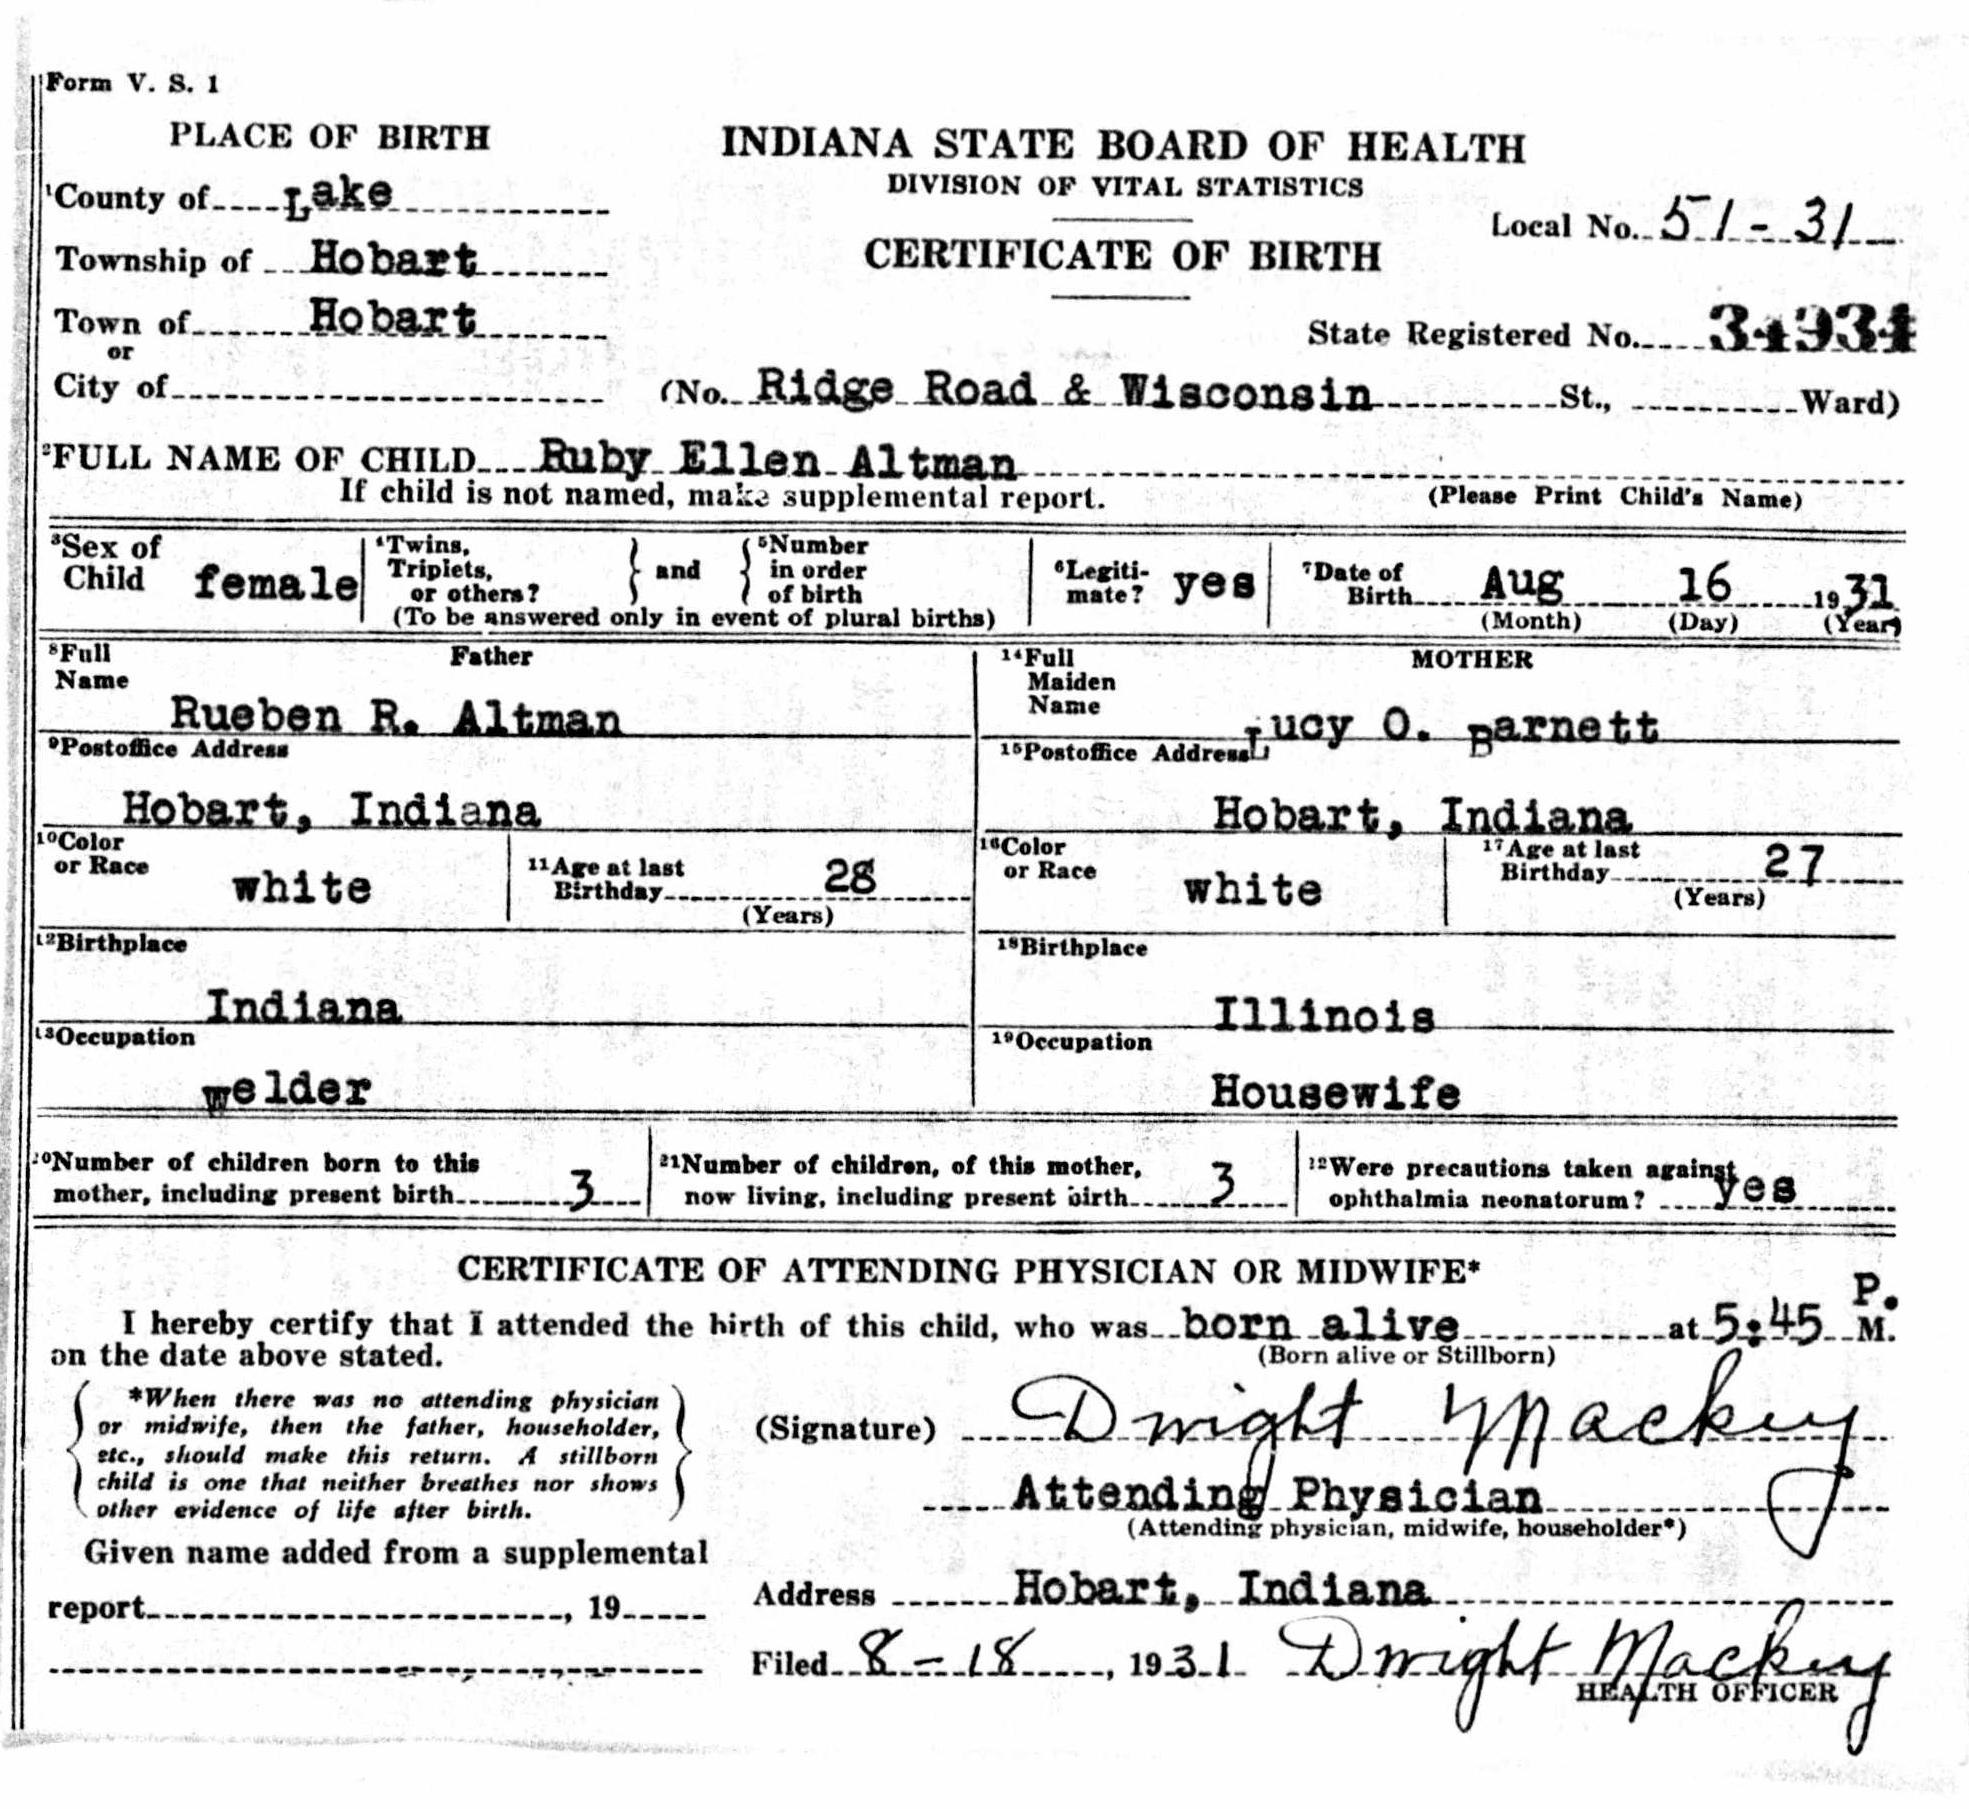 Form V. S. 1
PLACE OF BIRTH
INDIANA STATE BOARD OF HEALTH
DIVISION OF VITAL STATISTICS
1County of Lake
Local No. 51-31
Township of Hobart
CERTIFICATE OF BIRTH
Town of Hobart
or
State Registered No. 34934
City of (No. Ridge Road & Wisconsin St., Ward)
2FULL NAME OF CHILD Ruby Ellen Altman
If child is not named, make supplemental report. (Please Print Child's Name)
3Sex of Child female
4Twins, Triplets, or others? and 5Number in order of birth
(To be answered only in event of plural births)
6Legitimate? yes
7Date of Birth Aug 16 1931
(Month) (Day) (Year)
8Full Name Father
Rueben R. Altman
9Postoffice Address
Hobart, Indiana
10Color or Race white
11Age at last Birthday 28
(Years)
12Birthplace
Indiana
13Occupation
welder
14Full Maiden Name MOTHER
Lucy O. Barnett
15Postoffice Address
Hobart, Indiana
16Color or Race white
17Age at last Birthday 27
(Years)
18Birthplace
Illinois
19Occupation
Housewife
20Number of children born to this mother, including present birth 3
21Number of children, of this mother, now living, including present birth 3
22Were precautions taken against ophthalmia neonatorum? yes
CERTIFICATE OF ATTENDING PHYSICIAN OR MIDWIFE*
I hereby certify that I attended the birth of this child, who was born alive at 5:45 P. M.
on the date above stated. (Born alive or Stillborn)
*When there was no attending physician
or midwife, then the father, householder,
etc., should make this return. A stillborn
child is one that neither breathes nor shows
other evidence of life after birth.
(Signature) Dwight Mackey
Attending Physician
(Attending physician, midwife, householder*)
Given name added from a supplemental
report , 19
Address Hobart, Indiana
Filed 8-18, 1931 Dwight Mackey
HEALTH OFFICER